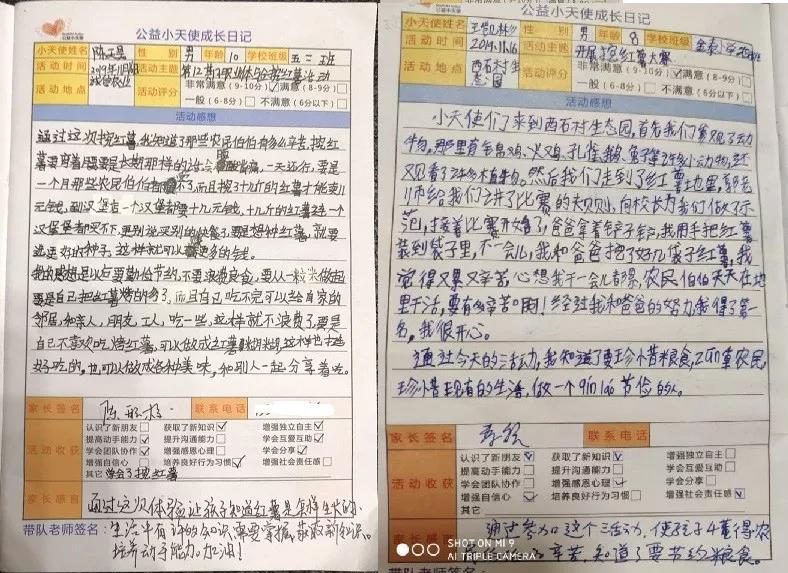 公益小天使成长日记
小天使姓名 性别 男 年龄 10 学校班级 五二班
活动时间 活动主题 第12期
活动地点 活动评分 非常满意(9-10分)☑满意(8-9分)□
一般(6-8分)□ 不满意(6分以下)□
活动感想
通过这次挖红薯,我知道了那些农民伯伯有多么辛苦,挖红
一个月那些农民伯伯 了,而且挖了十几斤的红薯才能卖几
元钱,到汉堡店一个汉堡都要十几元钱,十几斤的红薯连一个
汉堡都买不下,更别说买别的快餐,要是想种红薯,就要
选更好的种子,这样就可以 更多的钱。
我的感想是以后要勤俭节约,不要浪费粮食,要从一粒米做起
要是自己把红薯烤的多了,而且自己吃不完可以给自家的
邻居,和亲人,朋友,工人,吃一些,这样就不浪费了,要是
自己不喜欢吃烤红薯,可以做成红薯粥,这样也挺
好吃的,也可以做成各种美味,和别人一起分享着吃。
家长签名 联系电话
活动收获 认识了新朋友□ 获取了新知识☑ 增强独立自主☑
提高动手能力☑ 提升沟通能力□ 学会互爱互助☑
学会团队协作☑ 增强感恩心理□ 学会分享☑
增强自信心□ 培养良好行为习惯☑ 增强社会责任感□
其它 学会了挖红薯
家长感言 通过这次体验让孩子知道红薯是怎样生长的.
带队老师签名: 生活中有许多的知识需要掌握,获取新知识。
培养动手能力。加油!
公益小天使成长日记
小天使姓名 性别 男 年龄 8 学校班级
活动时间 2019.11.16 活动主题 开展挖红薯大赛
活动地点 西石村生态园 活动评分 非常满意(9-10分)☑满意(8-9分)□
一般(6-8分)□ 不满意(6分以下)□
活动感想
小天使们了来到西石村生态园,首先我们参观了动
物,那里有毛鸟鸡、火鸡、孔雀、鹅、兔子等许多小动物,还
又观看了许多植物。然后我们走到了红薯地里,郭老
师给我们会讲了比赛的夫见则,向校长为我们做了示
范,接着比赛开始了,爸爸拿着铲子铲,我用手把红薯
装到袋子里,不一会儿,我和爸爸把了好几袋子红薯,我
觉得又累又辛苦,心想我干一会儿都累,农民伯伯天天在地
里干活,要有多辛苦啊!经过我和爸爸的努力,我得了第一
名,我很开心。
通过今天的活动,我知道了要珍惜粮食,尊重农民,
珍惜现有的生活,做一个勤俭节俭的人。
家长签名 联系电话
活动收获 认识了新朋友☑ 获取了新知识☑ 增强独立自主□
提高动手能力□ 提升沟通能力□ 学会互爱互助□
学会团队协作□ 增强感恩心理☑ 学会分享□
增强自信心☑ 培养良好行为习惯□ 增强社会责任感☑
其它
通过参加这个活动,使孩子们懂得农
辛苦,知道了要节约粮食。
带队老师签名:
SHOT ON MI 9
AI TRIPLE CAMERA